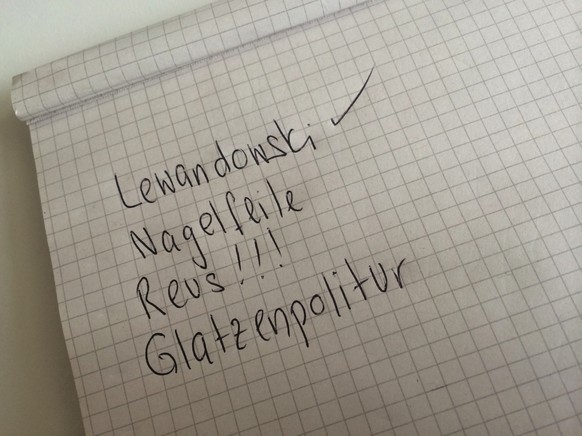 Lewandowski ✓
Nagelfeile
Reus!!!
Glatzenpolitur